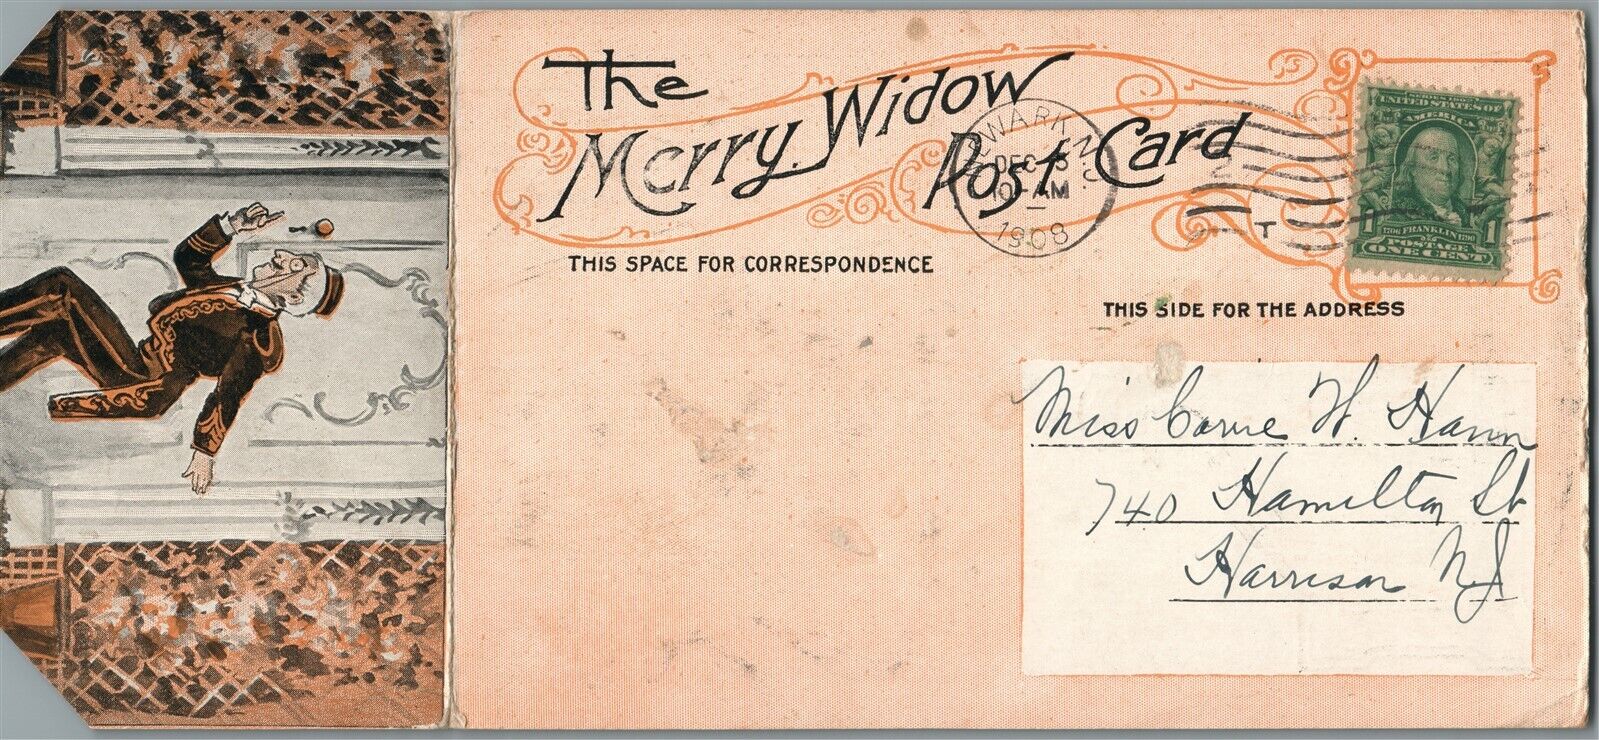 The
Merry Widow
Post Card
NEWARK, N.J.
DEC
10-AM
1908
T
SERIES 1902
UNITED STATES OF
AMERICA
1 1706 FRANKLIN 1790 1
POSTAGE
ONE CENT
THIS SPACE FOR CORRESPONDENCE
THIS SIDE FOR THE ADDRESS
Miss Carrie W. Hann
740 Hamilton St
Harrison N J